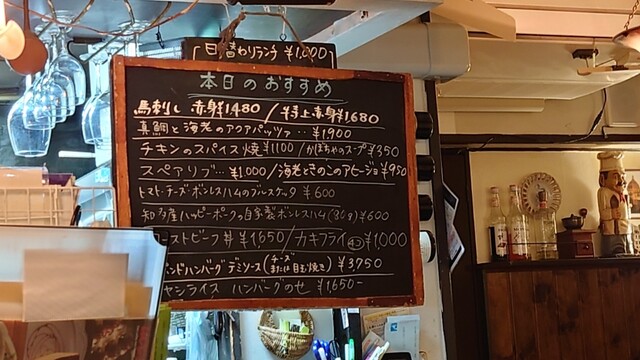 日替わりランチ ¥1,000
本日のおすすめ
馬刺し 赤身1480 / 特上赤身¥1,680
真鯛と海老のアクアパッツァ… ¥1,900
チキンのスパイス焼¥1100 / かぼちゃのスープ¥350
スペアリブ… ¥1,000 / 海老ときのこのアヒージョ¥950
トマト・チーズ・ボンレスハムのブルスケッタ ¥600
知多産ハッピーポークの自家製ボンレスハム(80g)¥600
ーストビーフ丼¥1,650 / カキフライ ¥1,000
ンドハンバーグ デミソース(チーズまたは目玉焼き) ¥3,750
ヤシライス ハンバーグのせ ¥1,650-